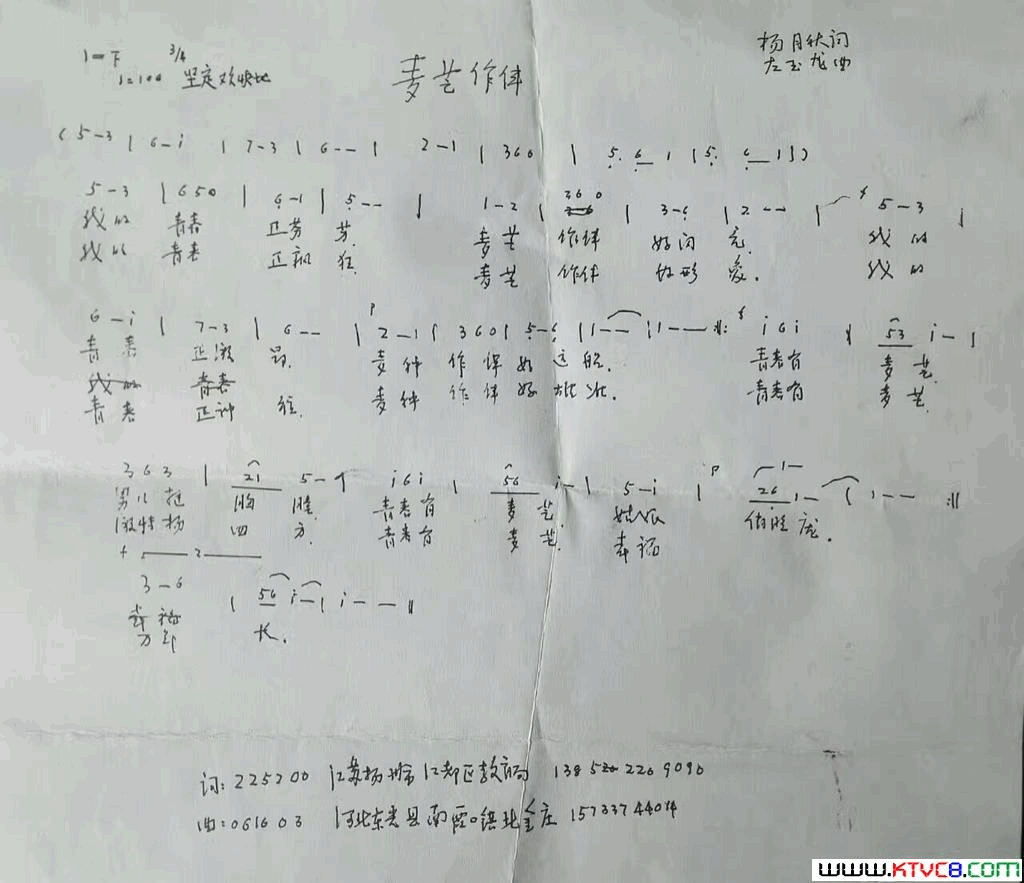 1=F 3/4
麦芒作伴
杨月秋词
左玉龙曲
♩=100 坚定欢快地
( 5 - 3 | 6 - i | 7 - 3 | 6 - - | 2 - 1 | 3 6 0 | 5. 6 1 | 5. 6 1 | )
5 - 3 | 6 5 0 | 6 - 1 | 5 - - | 1 - 2 | 3 6 0 | 3 - 6 | 2 - - | f 5 - 3 |
我的 青春 正芬 芳. 麦芒 作伴 好闪 亮. 我的
我的 青春 正 狂. 麦芒 作伴 好形 我的
6 - i | 7 - 3 | 6 - - | P 2 - 1 | 3 6 0 | 5 - 6 | 1 - - | 1 - - :‖: f i 6 i | 53 i - |
青春 正激 昂. 麦种 作伴 好 远航. 青春有 麦芒.
我的 青春
青春 正 麦种 作伴 好 青春有 麦芒.
3 6 3 | 21 5 - | i 6 i | 56 i - | 5 - i | P 26 1 - | 1 - - :‖
男儿挺 胸膛. 青春有 麦芒. 姑娘 俏脸庞.
扬 四方. 青春有 麦芒. 幸福
2
3 - 6 | 56 i - | i - - ‖
幸福 长.
万年
词: 225200 江苏扬州市江都区教 局 138 2209090
曲: 061603 河北东光县南霞口镇北金庄 15733744074
www.KTVC8.COM